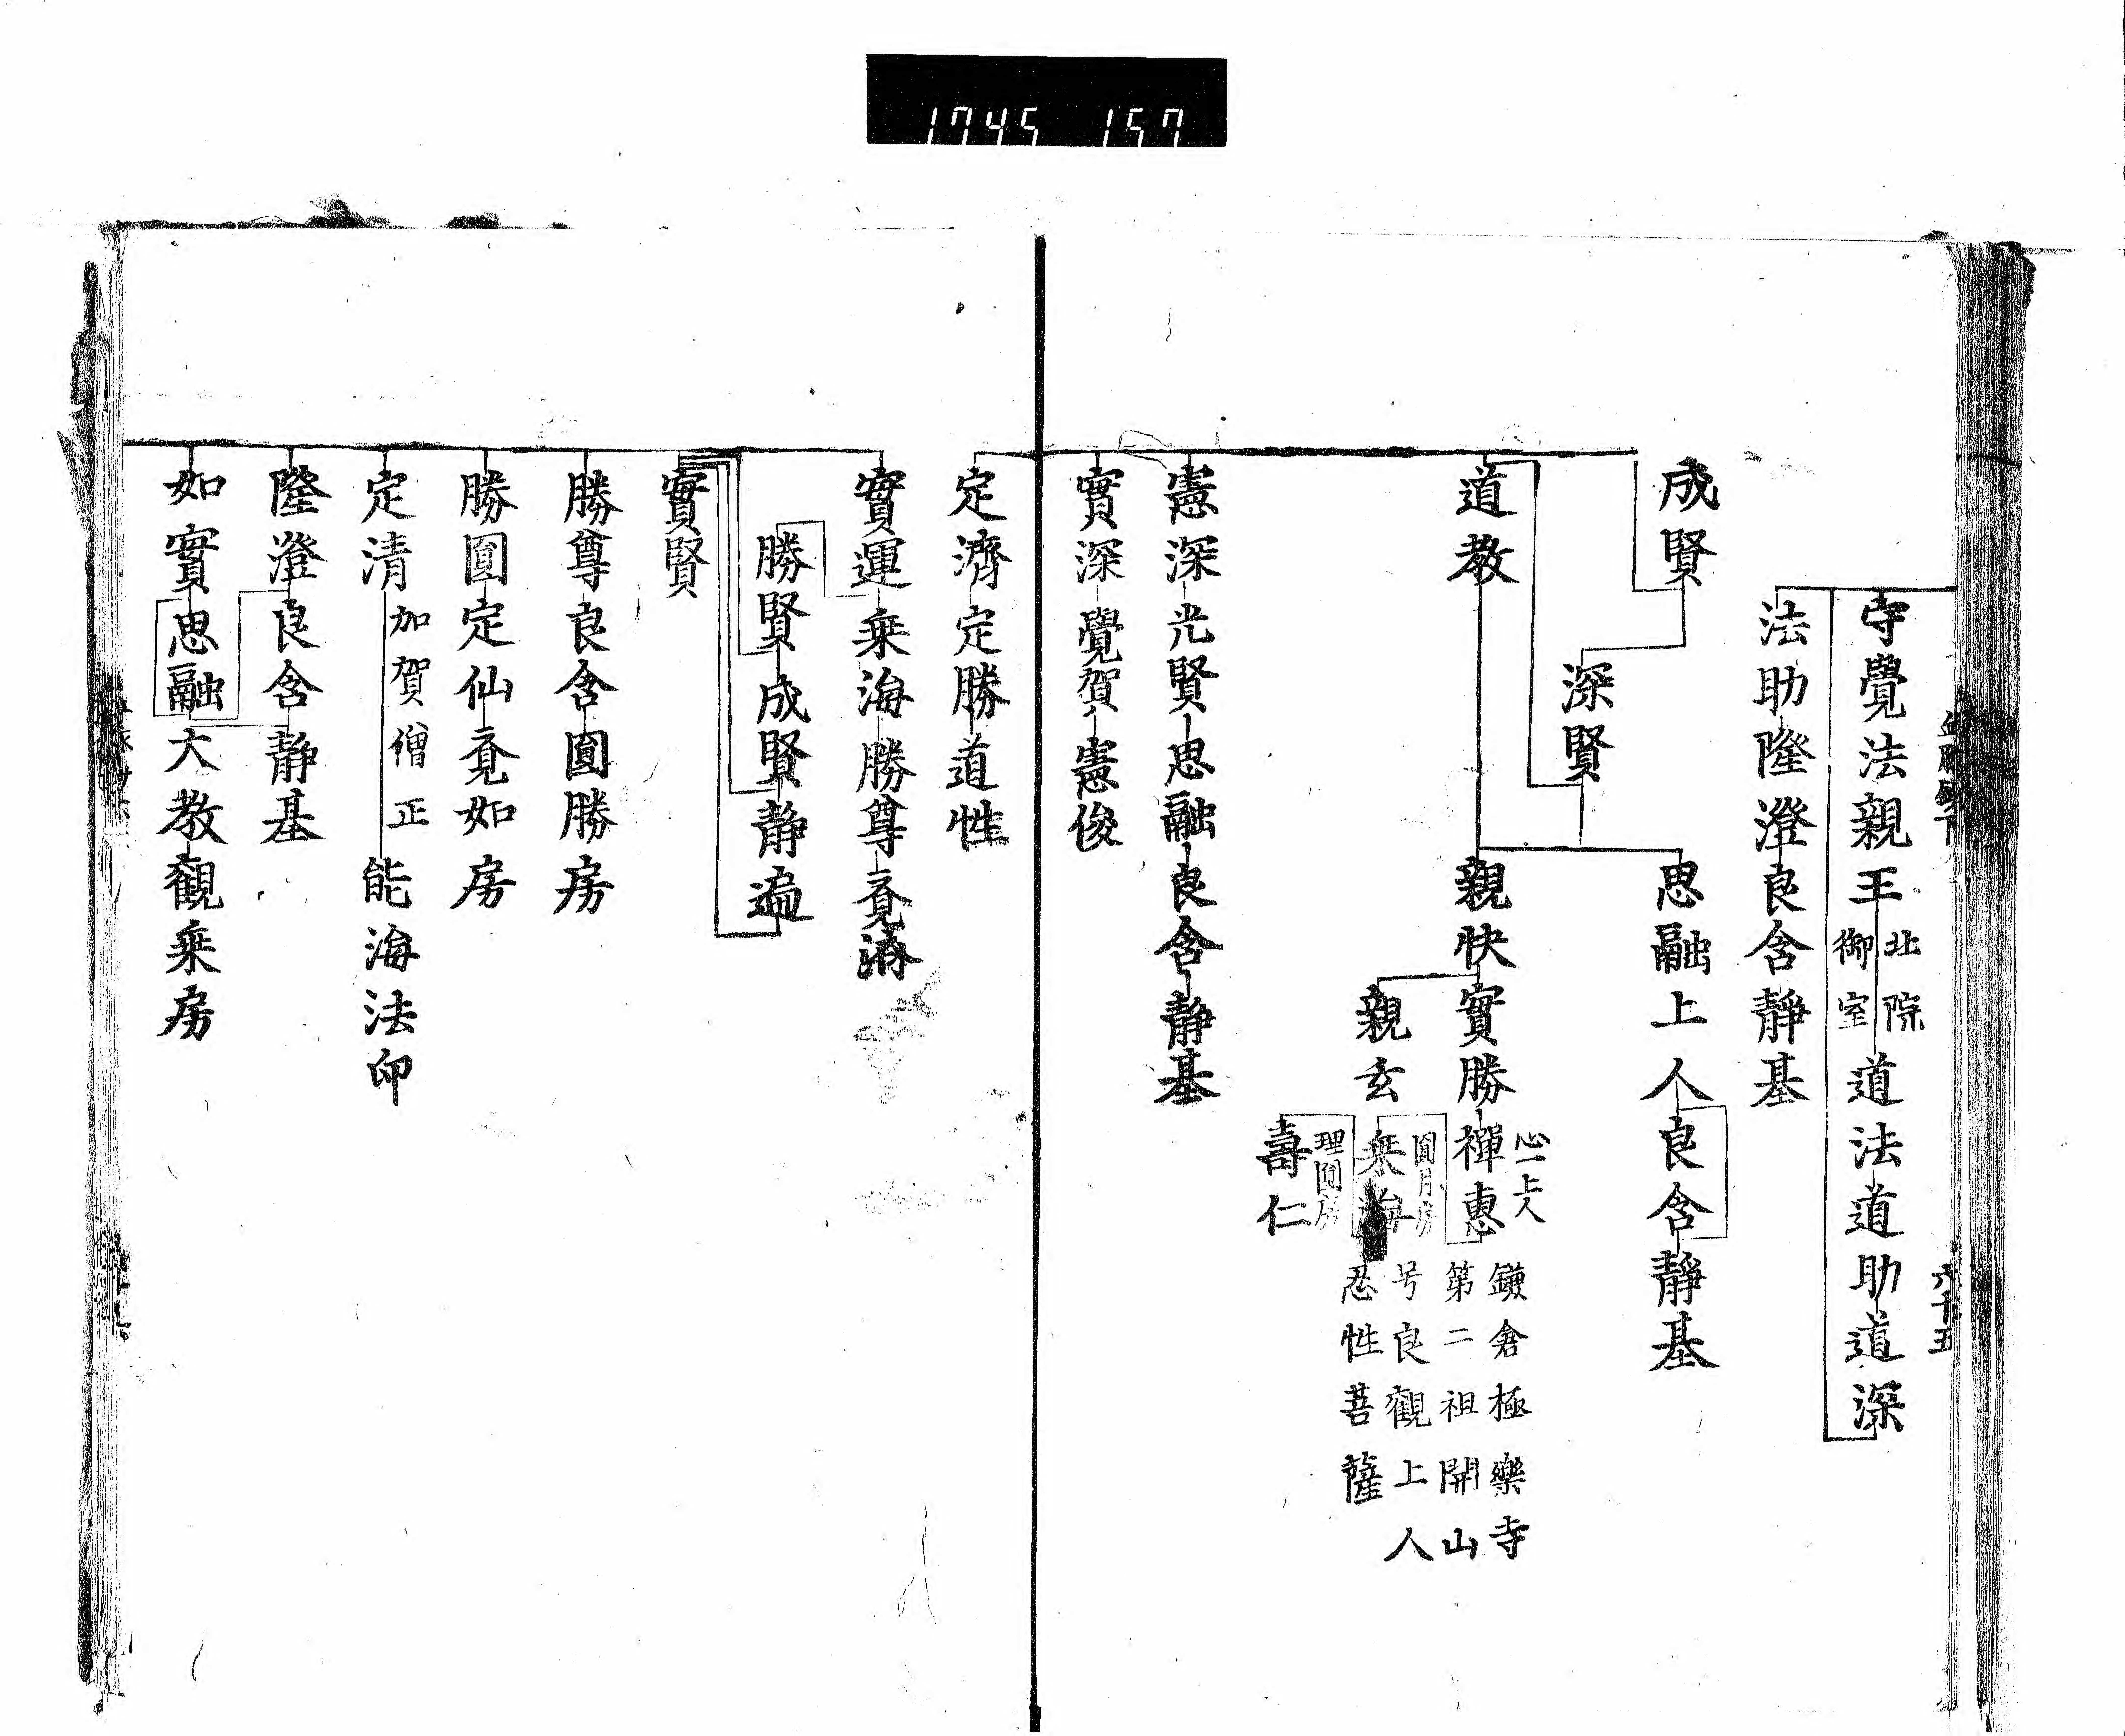 1745 157
六十五
守覺法親王 北院御室 道法道助道深
法助隆澄良含靜基
成賢
深賢
思融上人良含靜基
道教
親快實勝禪惠 心一上人
鎌倉極樂寺
第二祖開山
号良觀上人
忍性菩薩
親玄 圓月房
壽仁 理圓房
憲深光賢思融良含靜基
實深覺賀憲俊
定濟定勝道性
實運乗海勝尊覔濟
勝賢成賢靜遍
實賢
勝尊良含圓勝房
勝圓定仙覔如房
定清 加賀僧正 能海法印
隆澄良含靜基
如實思融大教觀乗房